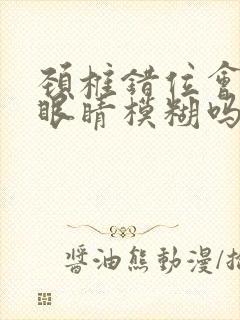 頚椎錯位會
眼睛模糊吗
醬油熊動漫/插